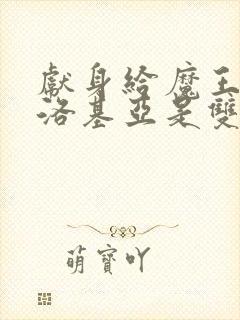 獻身給魔王
洛基亞是雙
萌寶吖